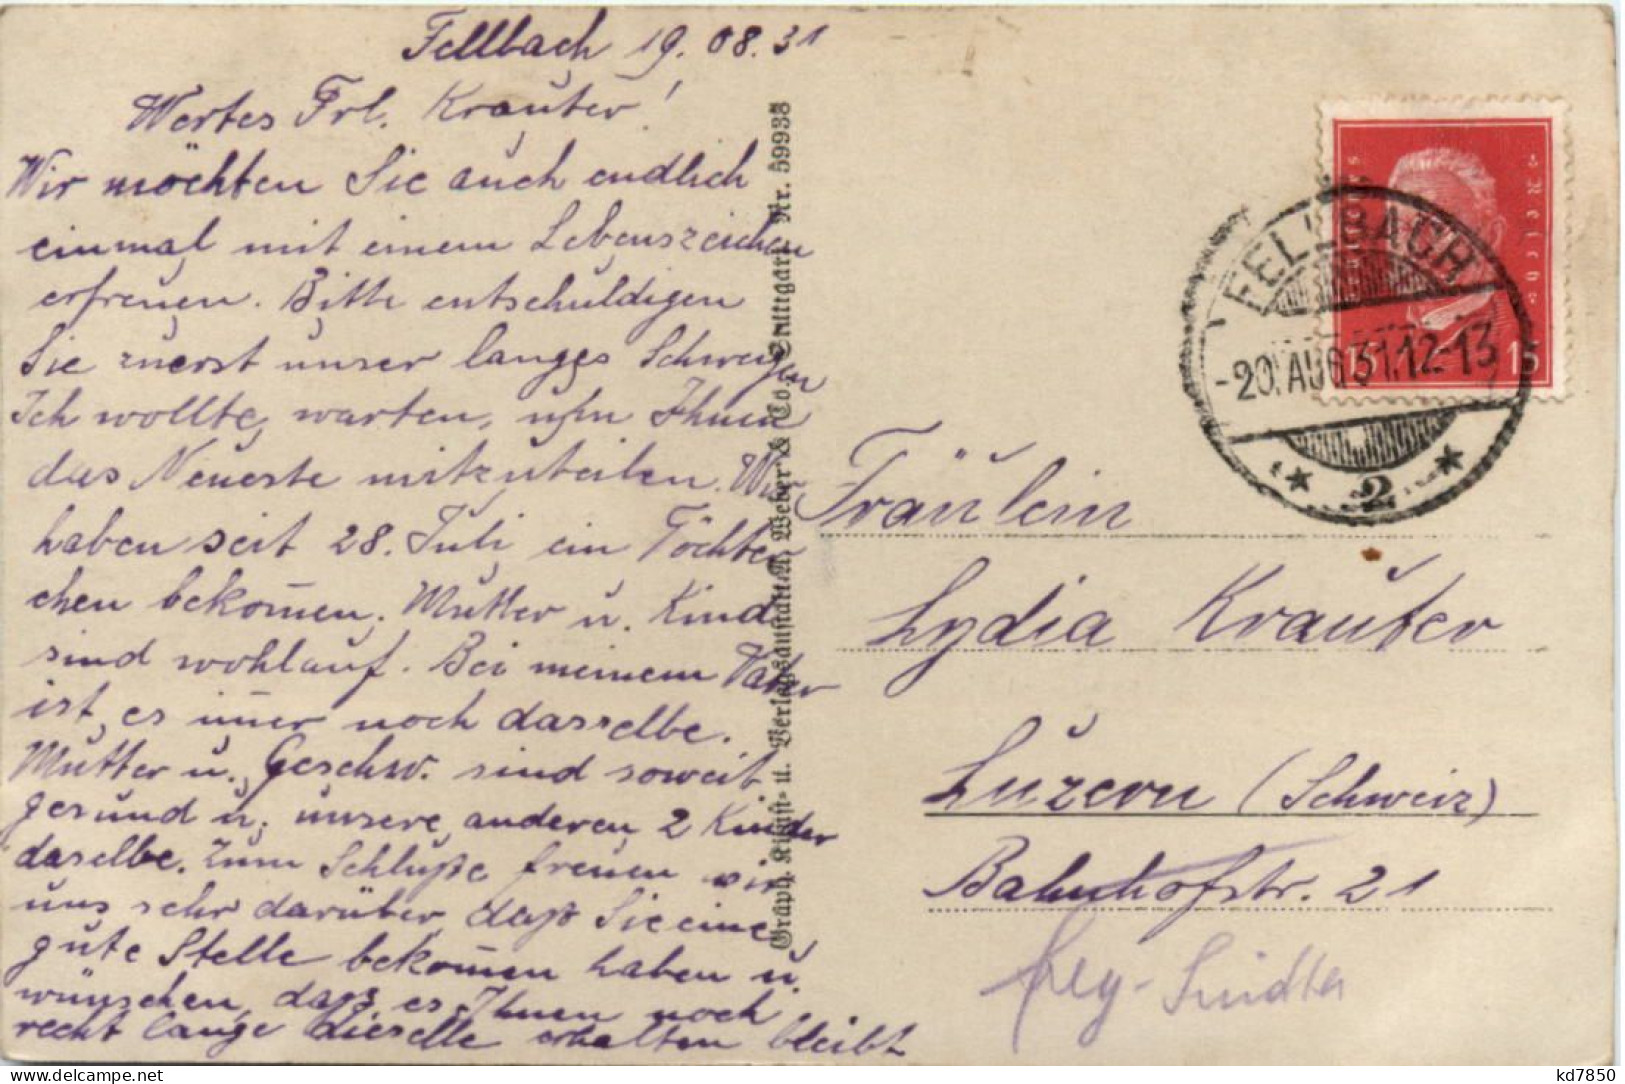 Fellbach 19.08.31
Wertes Frl. Krauter!
Wir möchten Sie auch endlich
einmal mit einem Lebenszeichen
erfreuen. Bitte entschuldigen
Sie zuerst unser langes Schweigen
Ich wollte warten, Ihnen
das Neueste mitzuteilen. Wir
haben seit 28. Juli ein Töchter
chen bekom̄en. Mutter u. Kind
sind wohlauf. Bei meinem Vater
ist es im̄er noch dasselbe.
Mutter u. Geschw. sind soweit
gesund u. unsere anderen 2 Kinder
daselbe. Zum Schluße freuen wir
uns sehr darüber, daß Sie eine
gute Stelle bekom̄en haben u.
wünschen, daß es Ihnen noch
recht lange dieselle erhalten bleibt
Graph. Kunst- u. Verlagsanstalt A. Weber & Co. Stuttgart Nr. 59933
Deutsches Reich
15 15
FELLBACH
-20.AUG31.12-13
* 2 *
Fräulein
Lydia Krauter
Luzern (Schweiz)
Bahnhofstr. 21